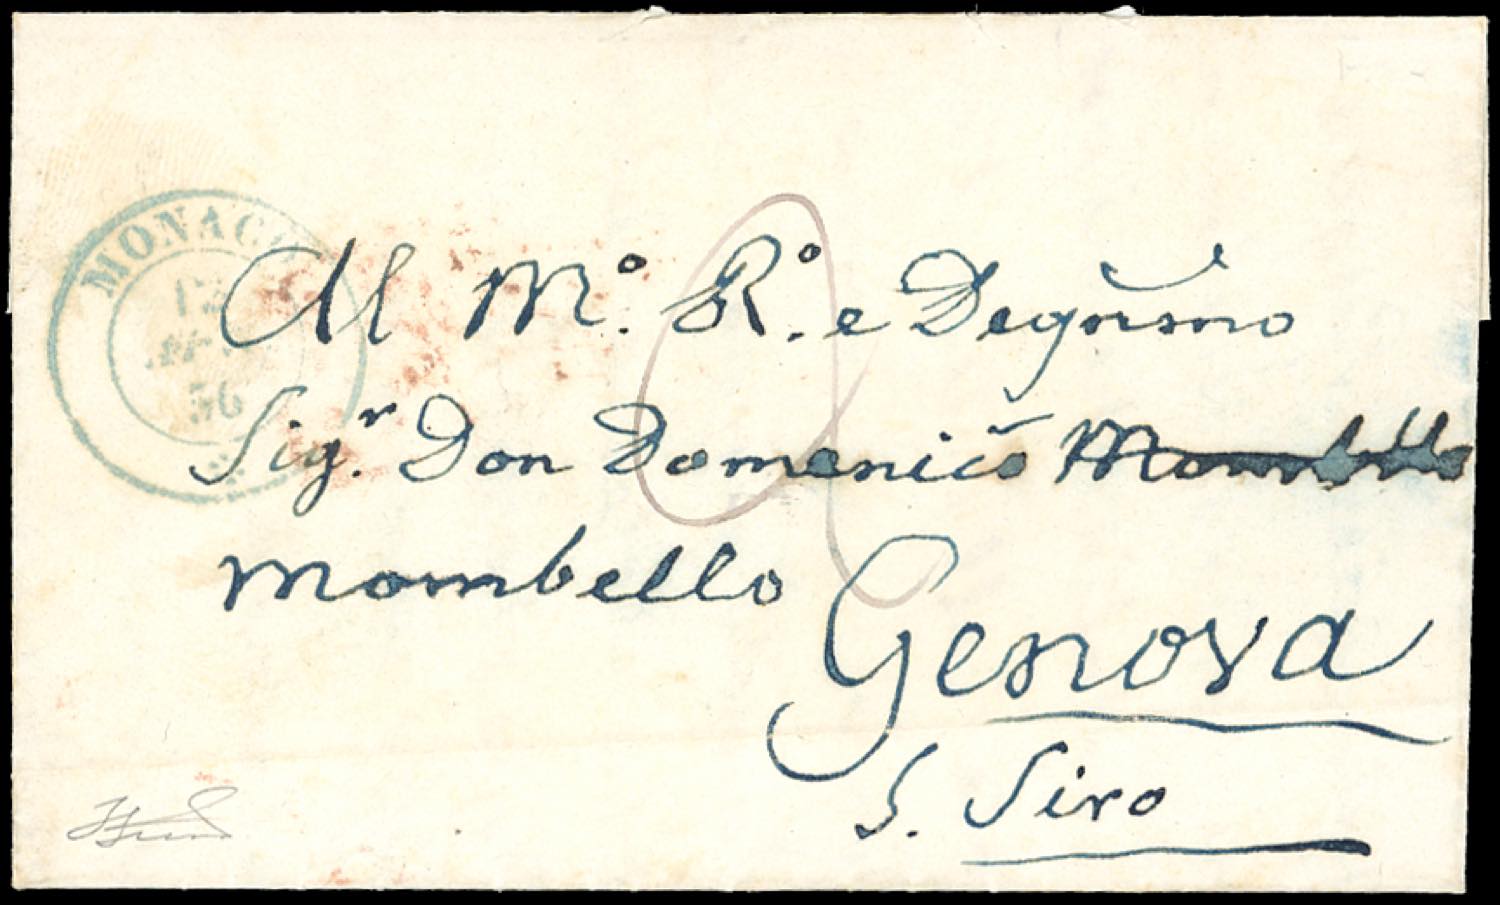 MONACO
56
Al M.º R.º e Degñsmo
Sig.r Don Domenico Mombello
Mombello
Genova
S. Siro